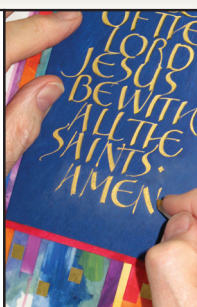 OF THE
LORD
JESUS
BE WITH
ALL THE
SAINTS.
AMEN